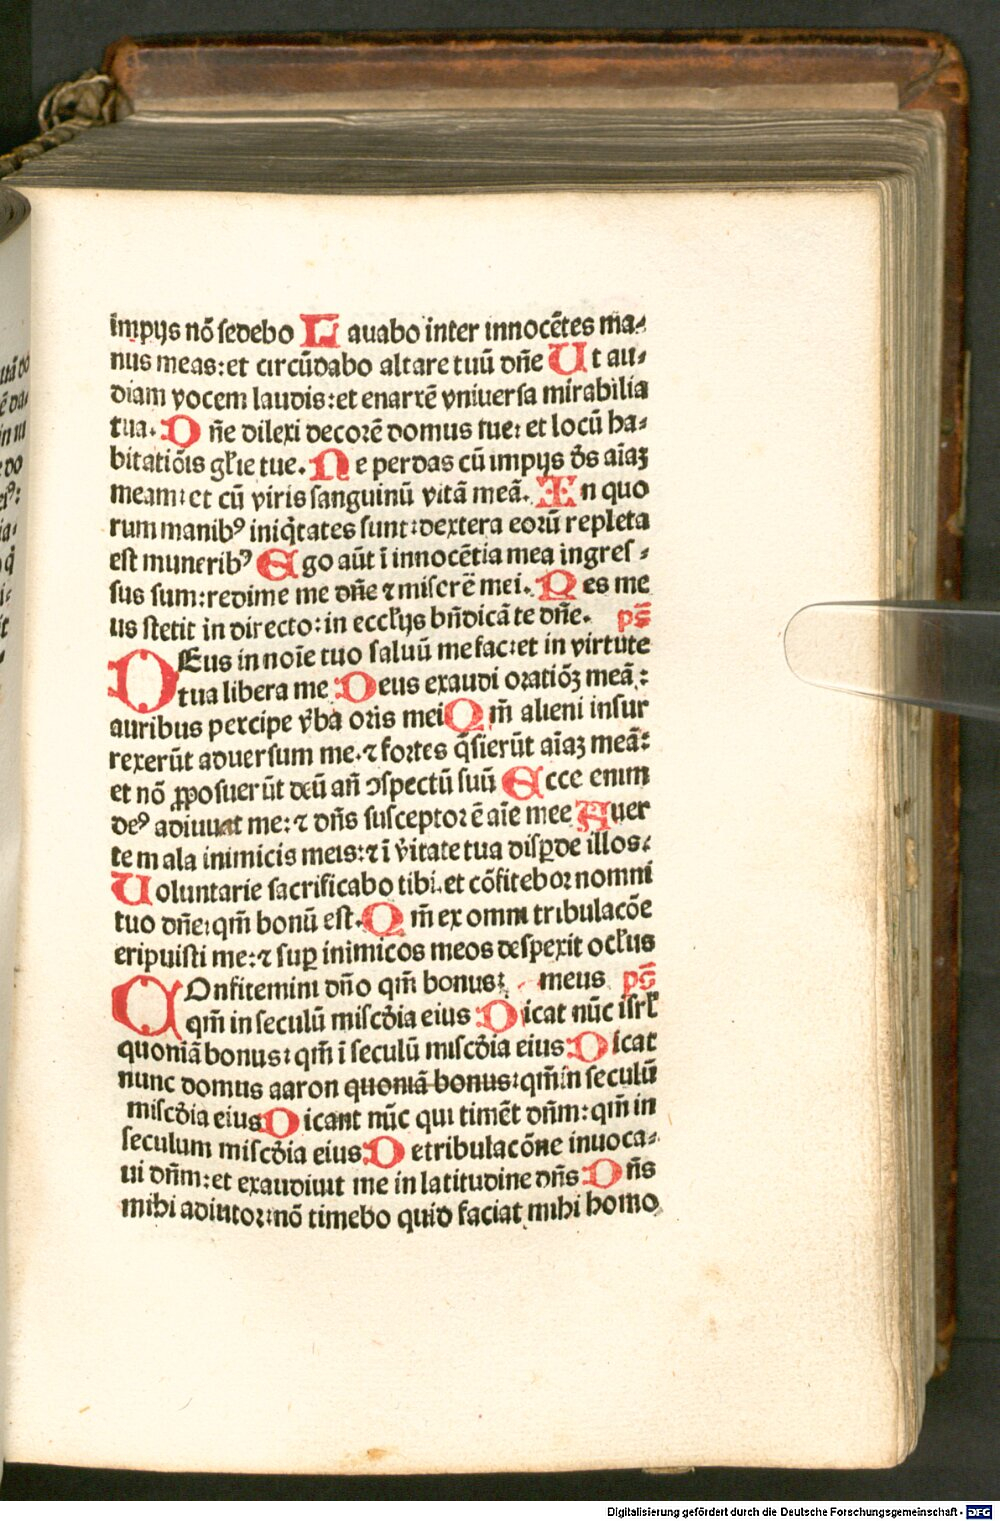 impijs nō sedebo Lauabo inter innocētes ma⸗
nus meas:et circūdabo altare tuū dn̄e Ut au⸗
diam vocem laudis:et enarrē vniuersa mirabilia
tua. Dn̄e dilexi decorē domus tue: et locū ha⸗
bitatiōis gl̄ie tue. Ne perdas cū impijs d̄s aīaꝫ
meam: et cū viris sanguinū vitā meā. In quo
rum manibꝰ iniq̄tates sunt:dextera eorū repleta
est muneribꝰ Ego aūt ī innocētia mea ingres⸗
sus sum:redime me dn̄e ⁊ miserē mei. Pes me
us stetit in directo:in eccl̄ijs bn̄dicā te dn̄e. pš
DEus in noīe tuo saluū me fac:et in virtute
tua libera me Deus exaudi oratiōꝫ meā:
auribus percipe v̄ba oris mei Qm̄ alieni insur
rexerūt aduersum me.⁊ fortes q̄sierūt aīaꝫ meā:
et nō ꝓposuerūt deū an̄ ꝯspectū suū Ecce enim
deꝰ adiuuat me:⁊ dn̄s susceptor ē aīe mee Auer
te mala inimicis meis:⁊ ī v̄itate tua disꝑde illos:
Uoluntarie sacrificabo tibi.et cōfitebor nomni
tuo dn̄e:qm̄ bonū est. Qm̄ ex omni tribulacōe
eripuisti me:⁊ suꝑ inimicos meos despexit ocl̄us
COnfitemini dn̄o qm̄ bonus: meus pš
qm̄ in seculū misc̄dia eius Dicat nūc isrl̄
quoniā bonus: qm̄ ī seculū misc̄dia eius Dicat
nunc domus aaron quoniā bonus:qm̄ in seculū
misc̄dia eius Dicant nūc qui timēt dn̄m:qm̄ in
seculum misc̄dia eius De tribulacōne inuoca⸗
ui dn̄m:et exaudiuit me in latitudine dn̄s Dn̄s
mihi adiutor:nō timebo quid faciat mihi homo
Digitalisierung gefördert durch die Deutsche Forschungsgemeinschaft - DFG